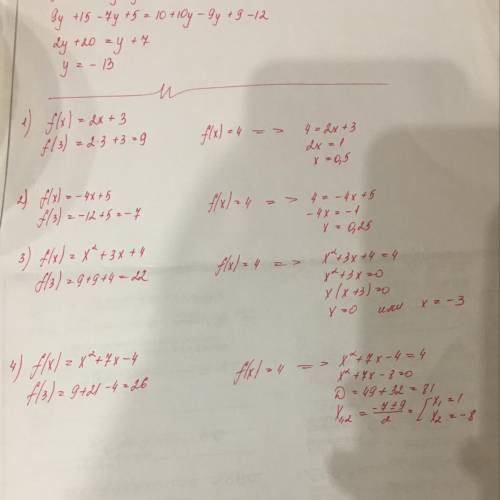 9y + 15 - 7y + 5 = 10 + 10y - 9y + 9 - 12
2y + 20 = y + 7
y = - 13
1) f(x) = 2x + 3
f(3) = 2·3 + 3 = 9
f(x) = 4 => 4 = 2x + 3
2x = 1
x = 0,5
2) f(x) = -4x + 5
f(3) = -12 + 5 = -7
f(x) = 4 => 4 = -4x + 5
-4x = -1
x = 0,25
3) f(x) = x² + 3x + 4
f(3) = 9 + 9 + 4 = 22
f(x) = 4 => x² + 3x + 4 = 4
x² + 3x = 0
x(x + 3) = 0
x = 0 или x = -3
4) f(x) = x² + 7x - 4
f(3) = 9 + 21 - 4 = 26
f(x) = 4 => x² + 7x - 4 = 4
x² + 7x - 8 = 0
D = 49 + 32 = 81
x₁,₂ = (-7 ± 9)/2 = [x₁ = 1
x₂ = -8